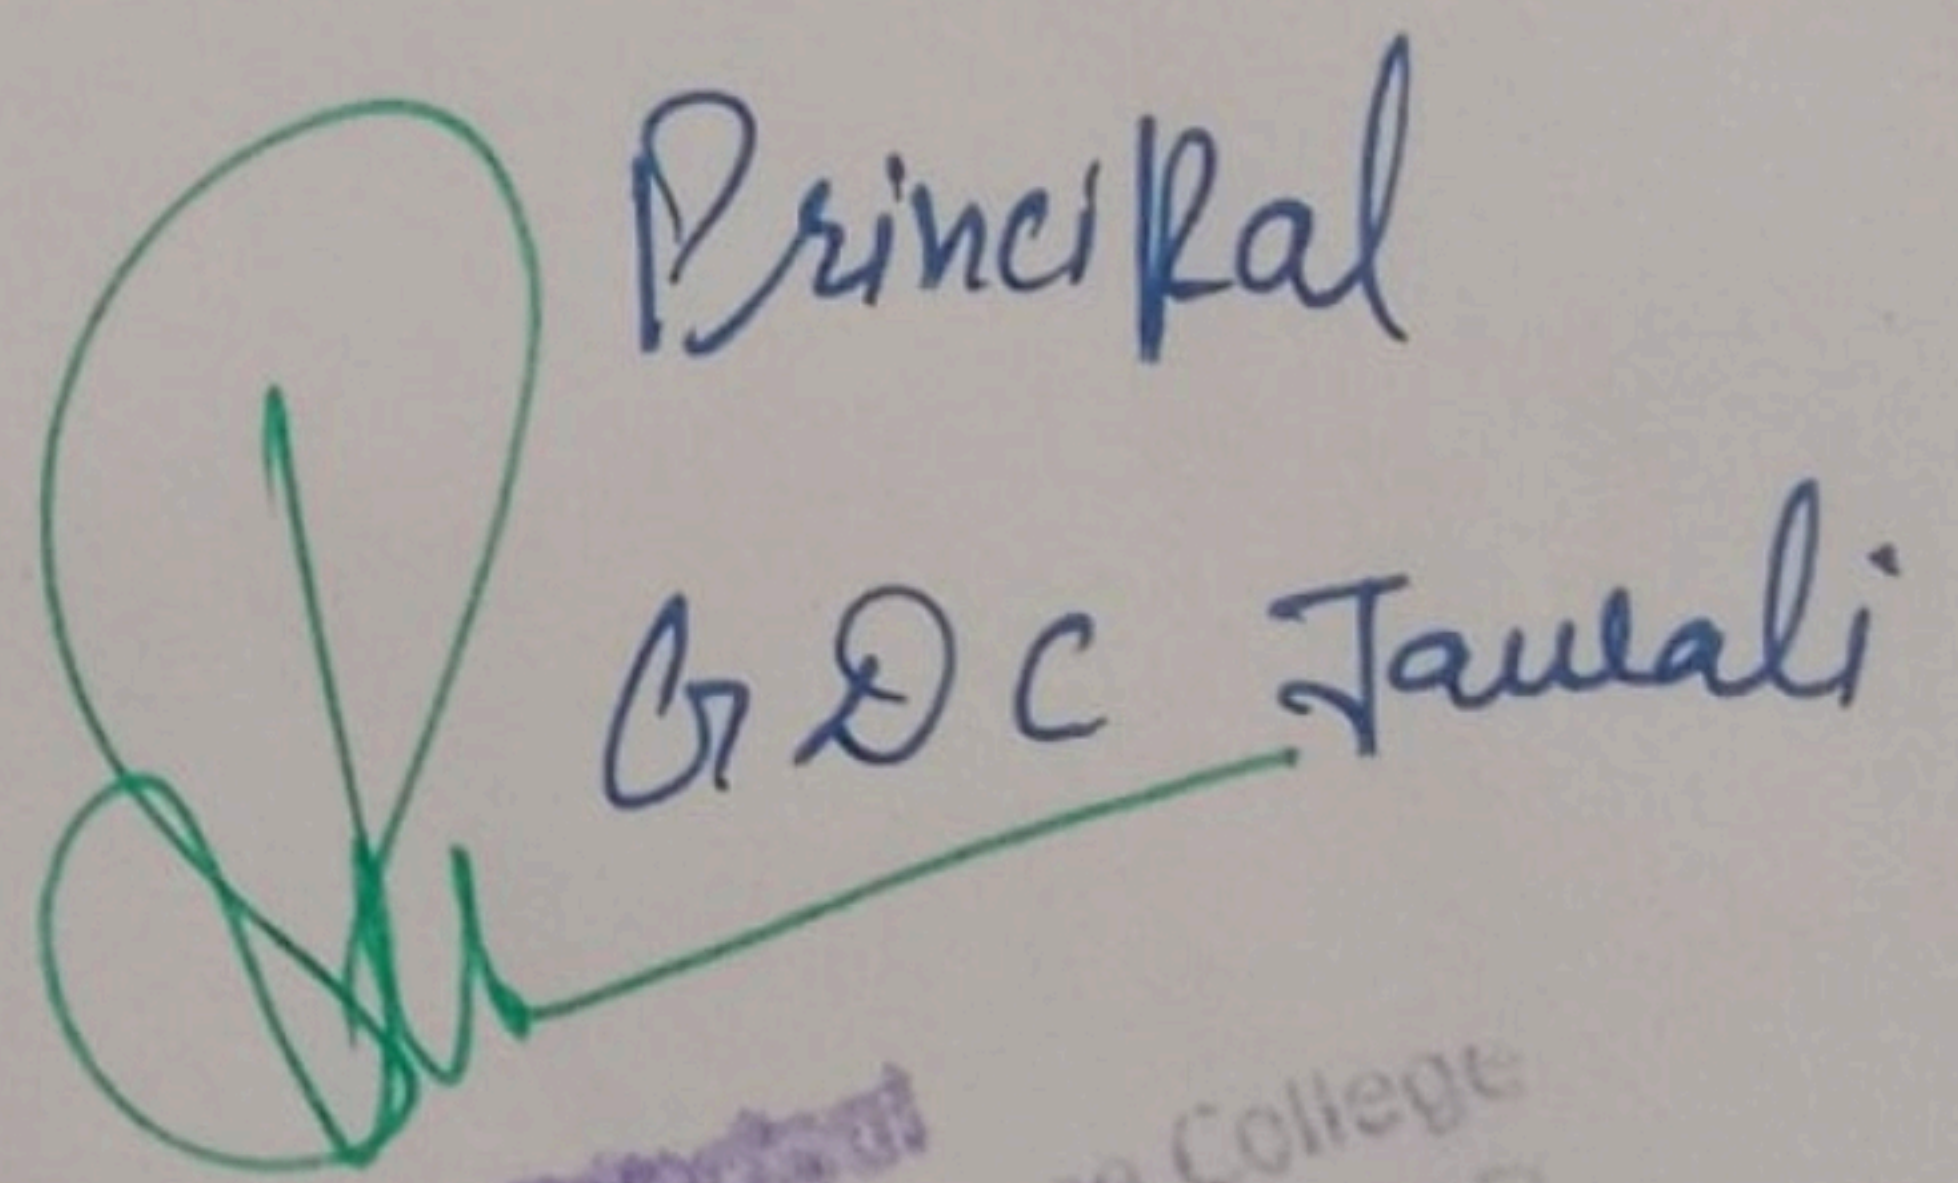 Principal
G D C Jawali
College